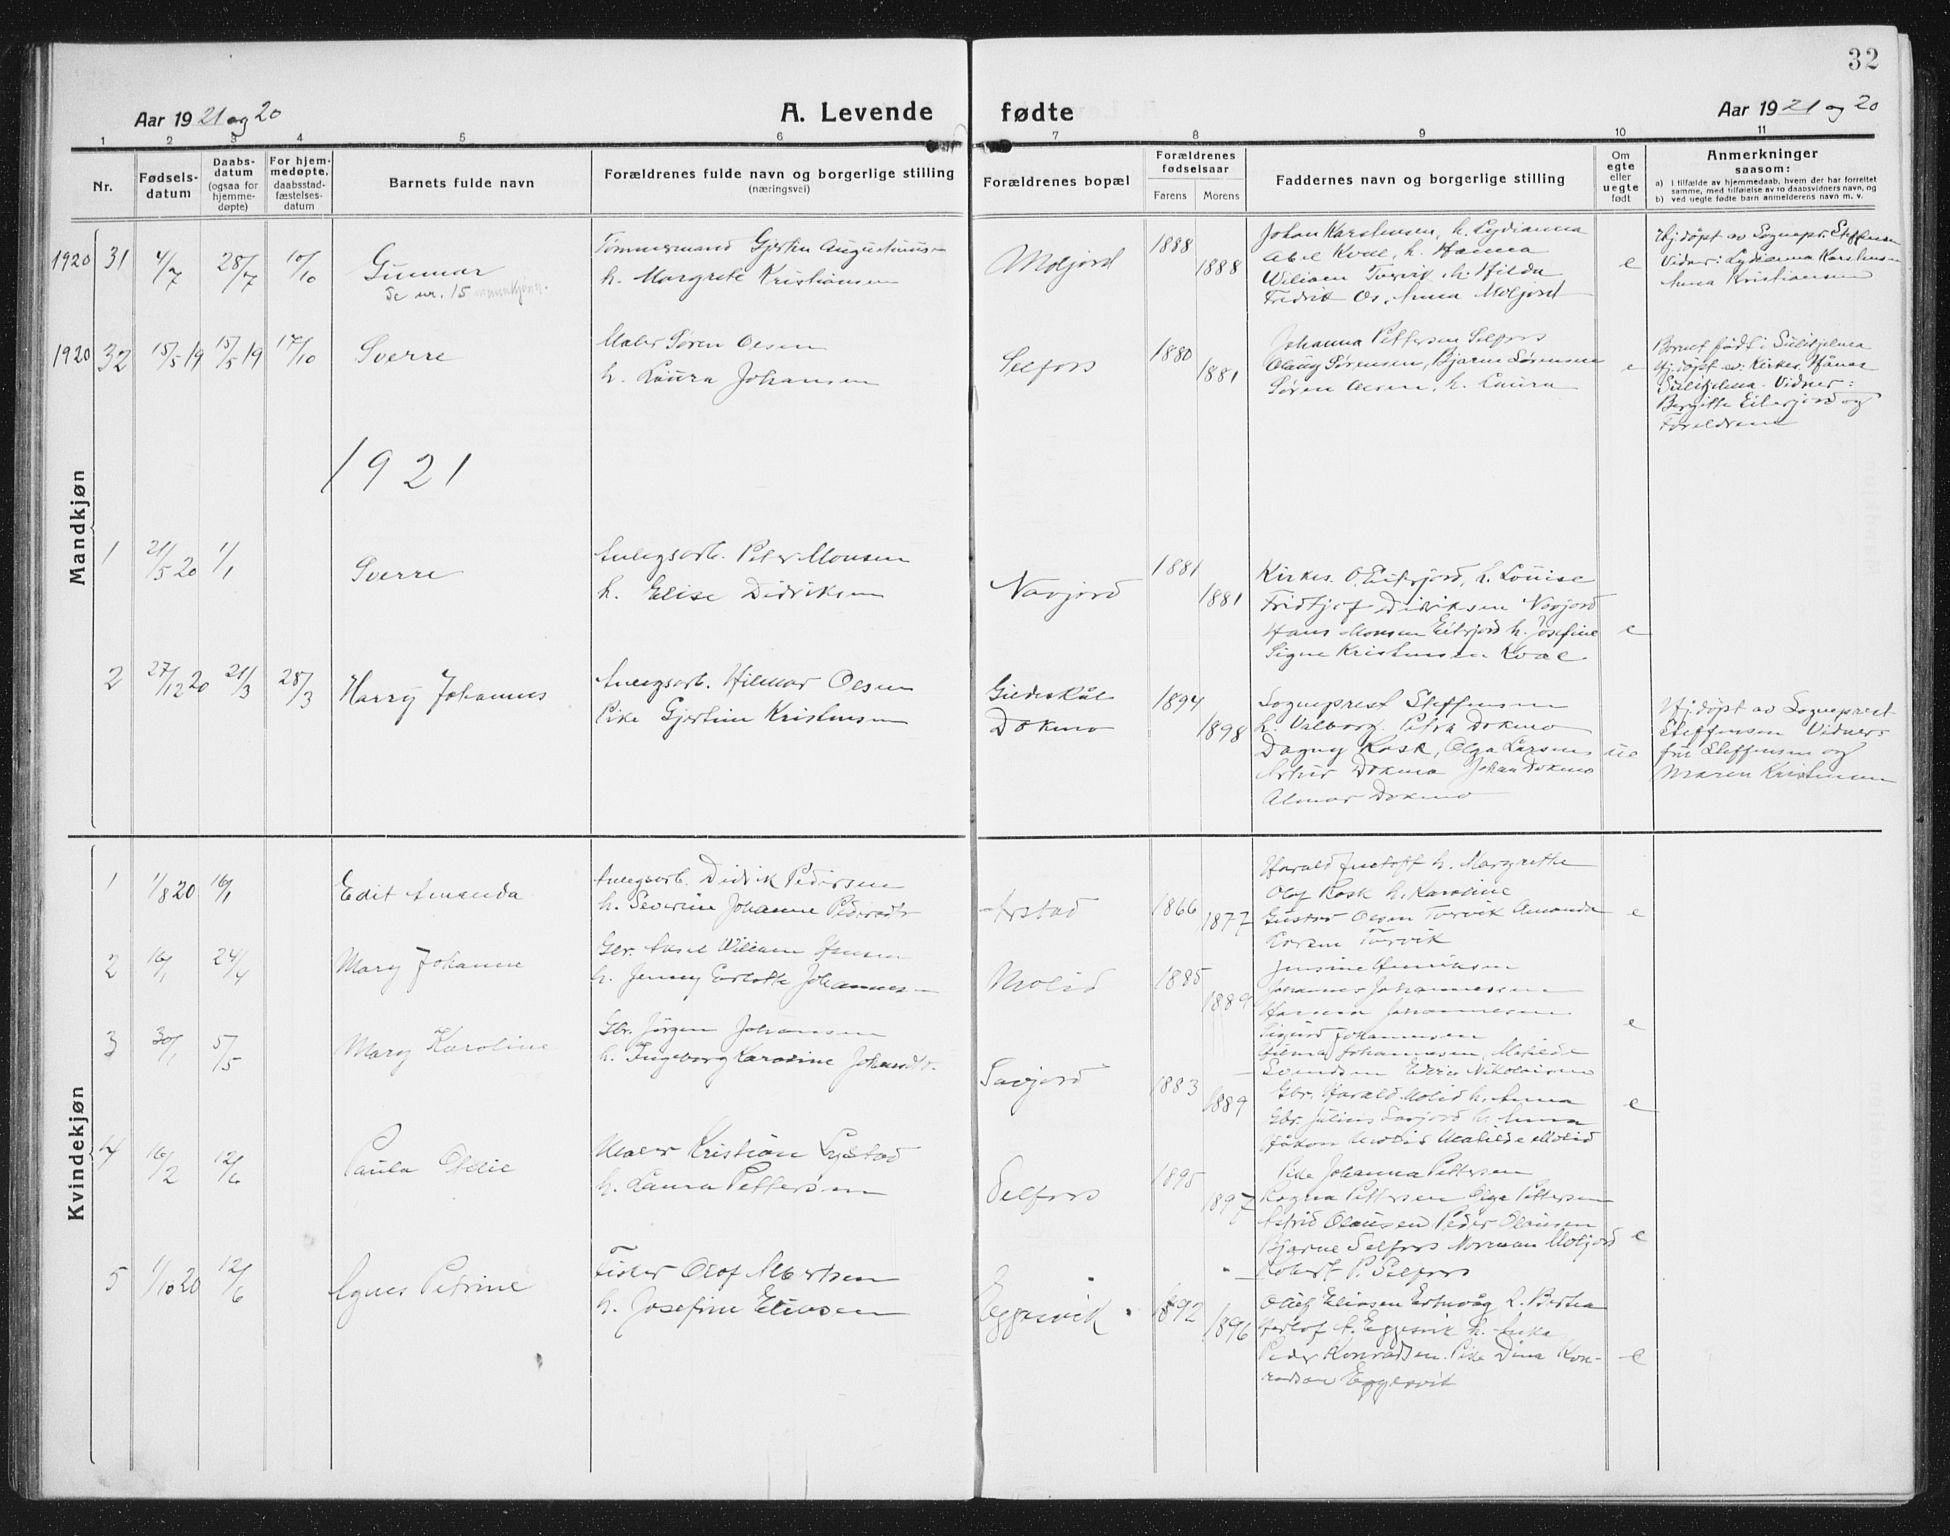 32
Aar 1921 og 20
A. Levende fødte
Aar 1921 og 20
1 2 3 4 5 6 7 8 9 10 11
Nr.
Fødsels-
datum
Daabs-
datum
(ogsaa for
hjemme-
døpte)
For hjem-
medøpte,
daabsstad-
fæstelses-
datum
Barnets fulde navn
Forældrenes fulde navn og borgerlige stilling
(næringsvei)
Forældrenes bopæl
Forældrenes
fødselsaar
Farens Morens
Faddernes navn og borgerlige stilling
Om
egte
eller
uegte
født
Anmerkninger
saasom:
a) i tilfælde av hjemmedaab, hvem der har forrettet
samme, med tilføielse av to daabsvidners navn, og
b) ved uegte fødte barn anmelderens navn m. v.
Mandkjøn
1920 31 4/7 28/7 10/10
Gunnar
Se nr. 15 mannkjønn.
Tømmermand Gjertin Augustinus-
h. Margrete Kristiansen
Moljord
1888
1888
Johan Karstensen, h. Lydianna
Abel Kval, h. Hanna
William Torvik, h. Hilda
Fredrik Os, Anna Moljord
e
Hj.døpt av Sognepr. Steffensen
Vidner: Lydianna Karstensen
Anna Kristiansen
1920 32 15/5 19 15/5 19 17/10
Sverre
Maler Søren Olsen
h. Laura Johansen
Selfors
1880
1881
Johanna Pettersen Selfors
Olaug Sørensen, Bjarne Sørensen
Søren Olsen, h. Laura
e
Barnet født i Sulitjelma
Hj.døpt av Kirkes.
Sulitjelma. Vidner:
Bergitte Eiterjord og
Foreldrene
1921
1 21/5 20 1/1
Sverre
Anlegsarb. Peter Monsen
h. Elise Didriksen
Navjord
1881
1881
Kirkes. O. Eiterjord, h. Louise
Fridtjof Didriksen Navjord
Hans Monsen Eiterjord h. Josefine
Signe Kristensen Kval
e
2 27/12 20 21/3 28/3
Harry Johannes
Anlegsarb. Hilmar Olsen
Pike Gjertine Kristensen
Gildeskål
Dokmo
1894
1898
Sogneprest Steffensen
h. Valborg. Petra Dokmo
Dagny Rask, Olga Larsen
Artur Dokmo Johan Dokmo
Almar Dokmo
ue
Hj.døpt av Sogneprest
Steffensen Vidner:
fru Steffensen og
Maren Kristensen
Kvindekjøn
1 1/8 20 16/1
Edit Amanda
Anlegsarb. Didrik Pedersen
h. Severine Johanne Pedersdtr
Arstad
1866
1877
Harald h. Margrethe
Olaf Rask h. Karoline
Gustav Olsen Torvik Amanda
Karen Torvik
e
2 16/1 24/4
Mary Johanne
Gbr. Aksel William Hansen
h. Jenny Johannes-
Molid
1885
1889
Jensine Henriksen
Johannes Johannessen
Hanna Johannesen
Sigurd Johannesen
Hilma Johannesen, Matilde
e
3 30/1 5/5
Mary Karoline
Gbr. Jørgen Johansen
h. Ingeborg Karoline Johansdtr.
Savjord
1883
1889
Svendsen Nikolaisen
Gbr. Harald Molid h. Anna
Gbr. Julius Savjord h. Anna
Håkon Molid Matilde Molid
e
4 16/2 12/6
Paula Otelie
Maler Kristian Lystad
h. Laura Pettersen
Selfors
1895
1897
Pike Johanna Pettersen
Ragna Pettersen Olga Pettersen
Astrid Olausen Peder Olausen
Bjarne Selfors Norman Moljord
Robert P. Selfors
e
5 1/10 20 12/6
Agnes Petrine
Fisker Olaf Albertsen
h. Josefine Eliasen
Eggesvik
1892
1896
Eliasen h. Berta
Herlof A. Eggesvik h. Anka
Peder Konradsen. Pike Dina Kon-
radsen Eggesvik
e